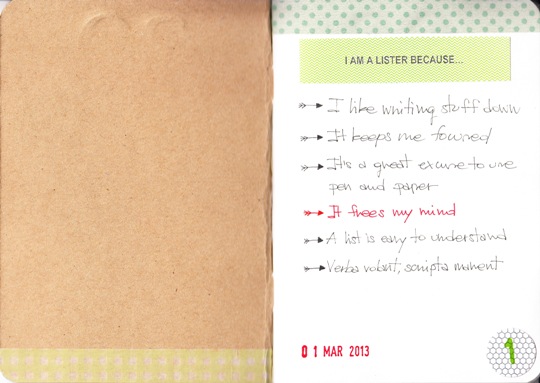 I AM A LISTER BECAUSE...
I like writing stuff down
It keeps me focused
It's a great excuse to use
pen and paper
It frees my mind
A list is easy to understand
Verba volant; scripta manent
01 MAR 2013
1